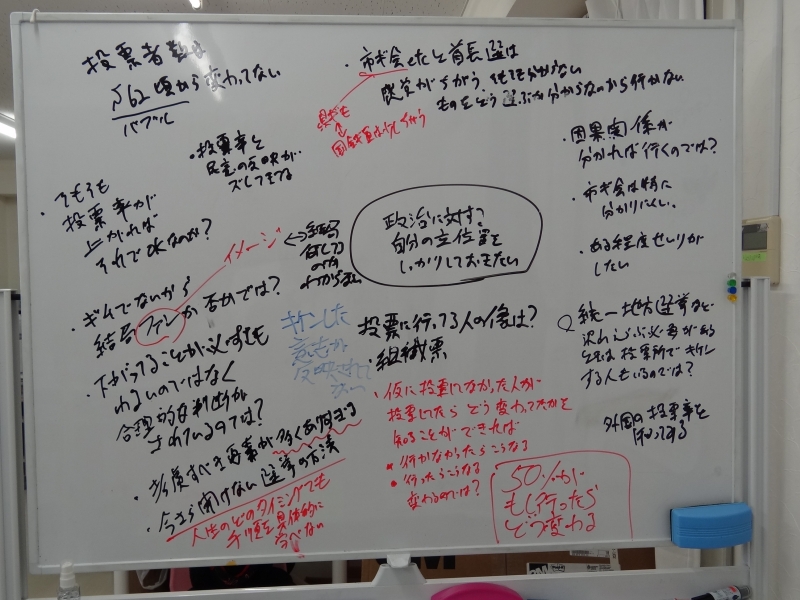 投票者数は
S62頃から変わってない
バブル
・投票率と
民意の反映が
ズレてきてる
・市ギ会とたと首長選は
わからない
ものをどう選ぶか分からないから行かない
・因果関係が
分かれば行くのでは?
・市ギ会は特に
分かりにくい。
・ある程度せいりが
したい
・そもそも
投票率が
上がれば
それでOKなのか?
イメージ
⇔結局
何してる
のか
わからない
政治に対する
自分の立位置を
しっかりしておきたい
・ギムでないから
結局ファンか否かでは?
・下がってることが必ずしも
わるいのではなく
合理的な判断が
されているのでは?
キケンした
意志が
反映されて
ない
投票に行ってる人の像は?
・組織票
統一地方選挙など
沢山えらぶ必要がある
ときは投票所でキケン
する人もいるのでは?
外国の投票率を
知ってみる
・考慮すべき事が多くありすぎる
・今さら聞けない選挙の方法
人生のどのタイミングでも
手順を具体的に
学べない
・仮に投票しなかった人が
投票したらどう変わってたかを
知ることができれば
・行かなかったらこうなる
・行ったらこうなる
変わるのでは?
50%が
もし行ったら
どう変わる